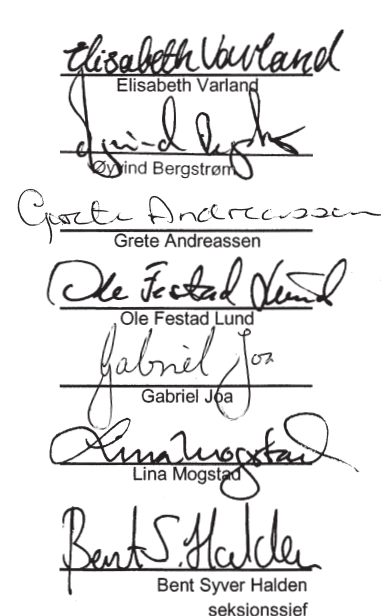 Elisabeth Varland
Elisabeth Varland
Øyvind Bergstrøm
Grete Andreassen
Grete Andreassen
Ole Festad Lund
Ole Festad Lund
Gabriel Joa
Gabriel Joa
Lina Mogstad
Lina Mogstad
Bent S. Halden
Bent Syver Halden
seksionssief